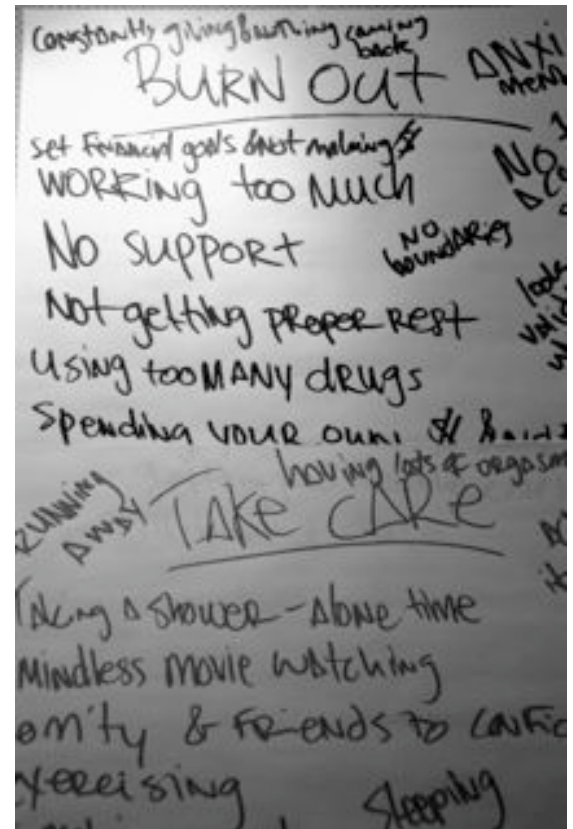 Constantly giving & nothing coming back
BURN OUT
ANXI
set Financial goals & not making $
WORKING too Much
NO
No SUPPORT
NO boundaries
Not getting PROPER REST
Using too MANY dRUGS
Spending YOUR own
having lots of orgasm
RUNNING AWAY
TAKE CARE
Taking A Shower - Alone time
Mindless movie watching
& FRiENDS to
exercising
Sleeping